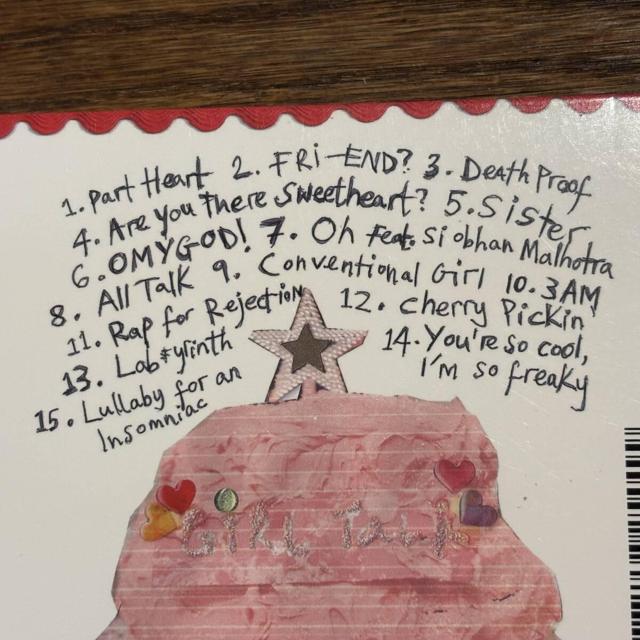 1. Part Heart 2. FRi-END? 3. Death Proof
4. Are you There Sweetheart? 5. Sister
6. OMYGOD! 7. Oh feat. Siobhan Malhotra
8. All Talk 9. Conventional Girl 10. 3AM
11. Rap for Rejection 12. Cherry Pickin
13. Labyrinth 14. You're so cool,
I'm so freaky
15. Lullaby for an
Insomniac
GiRL TaLK